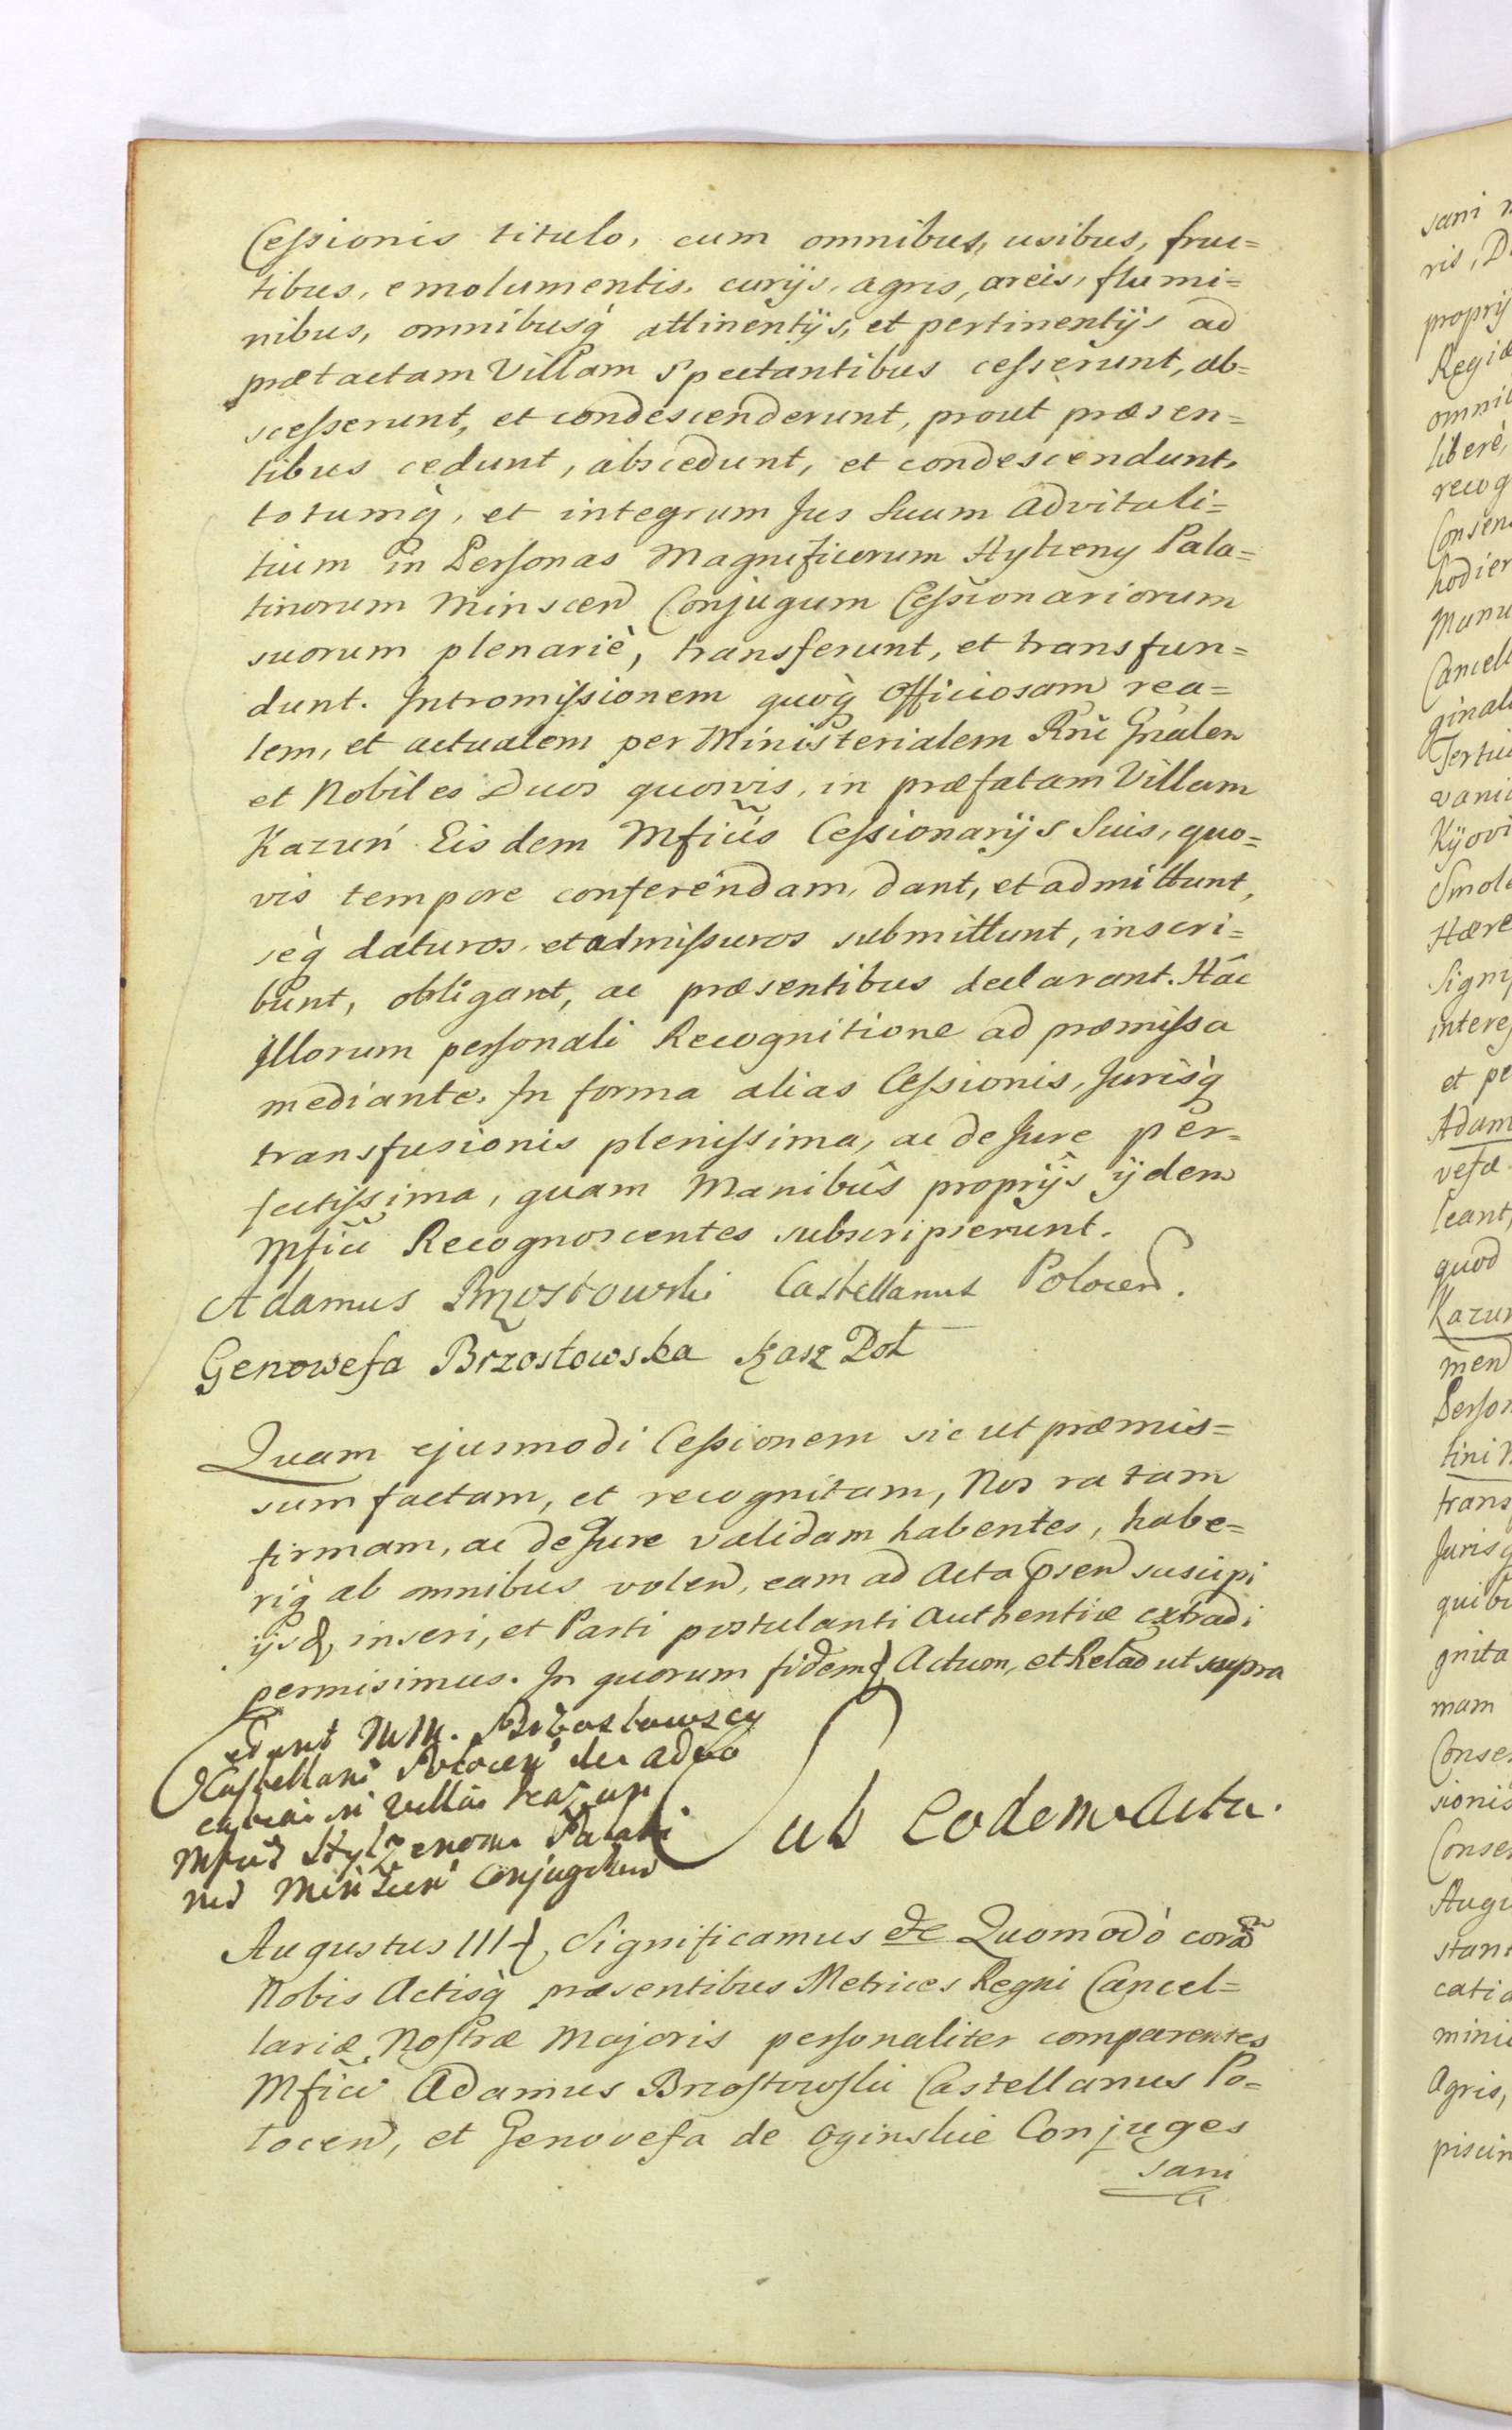 Cessionis titulo, cum omnibus, usibus, fruc=
tibus, emolumentis, curijs, agris, areis, flumi=
nibus, omnibusq̀ attinentijs, et pertinentijs ad
prætactam Villam Spectantibus cesserunt, ab=
scesserunt, et condescenderunt, prout præsen=
tibus cedunt, abscedunt, et condescendunt,
totumq̀, et integrum Jus Suum advitali=
tium in Personas Magnificorum Hylzeny Pala=
tinorum Minscen Conjugum Cessionariorum
suorum plenariè, transferunt, et transfun=
dunt. Intromissionem quoq̀ Officiosam rea=
lem, et actualem per Ministerialem Rñi Gñalen
et Nobiles Duos quosvis, in præfatam Villam
Kazuń Eisdem Mficis Cessionarijs Suis, quo=
vis tempore conferendam, dant, et admittunt,
seq̀ daturos, et admissuros submittunt, inscri=
bunt, obligant, ac præsentibus declarant. Hâc
Illorum personali Recognitione ad præmissa
mediante. In forma alias Cessionis, Jurisq̀
transfusionis plenissima, ac de Jure per=
fectissima, quam Manibûs proprijs ijdem
Mfici Recognoscentes subscripserunt.
Adamus Brzostowski Castellanus Polocen.
Genowefa Brzostowska Kasz Poł
Quam ejusmodi Cessionem sic ut præmis=
sum factam, et recognitam, Nos ratam
firmam, ac de Jure validam habentes, habe=
riq̀ ab omnibus volen, eam ad Acta psen suscipi
ijsq, inseri, et Parti postulanti authentice extradi
permisimus. In quorum fidem Actum, et Relao ut supra
Cedunt MM. Brzostowscy
Castellani Polocen
Villa Kazun
Mficis Hylzenom Palati
nis Minscen Conjugibus
Sub Eodem Actu.
Augustus III, Significamus &c Quomodò corã
Nobis Actisq̀ præsentibus Metrices Regni Cancel=
lariæ Nostræ Majoris personaliter comparentes
Mfici Adamus Brzostowski Castellanus Po=
locen, et Genovefa de Oginskie Conjuges
sani
sani
ris, D
proprij
Regiæ
omni
liberè,
recog
Consen
hodier
Manu
Cancell
ginal
Tertii
vani
Kijovi
Smole
Hære
Signi
interes
et pe
Adam
vefæ
leant,
quod
Kazun
men
Person
tini
trans
Jurisq
quibu
gnita
mam
Conse
sionis
Conse
Augu
stant
catio
mini
Agris,
piscin